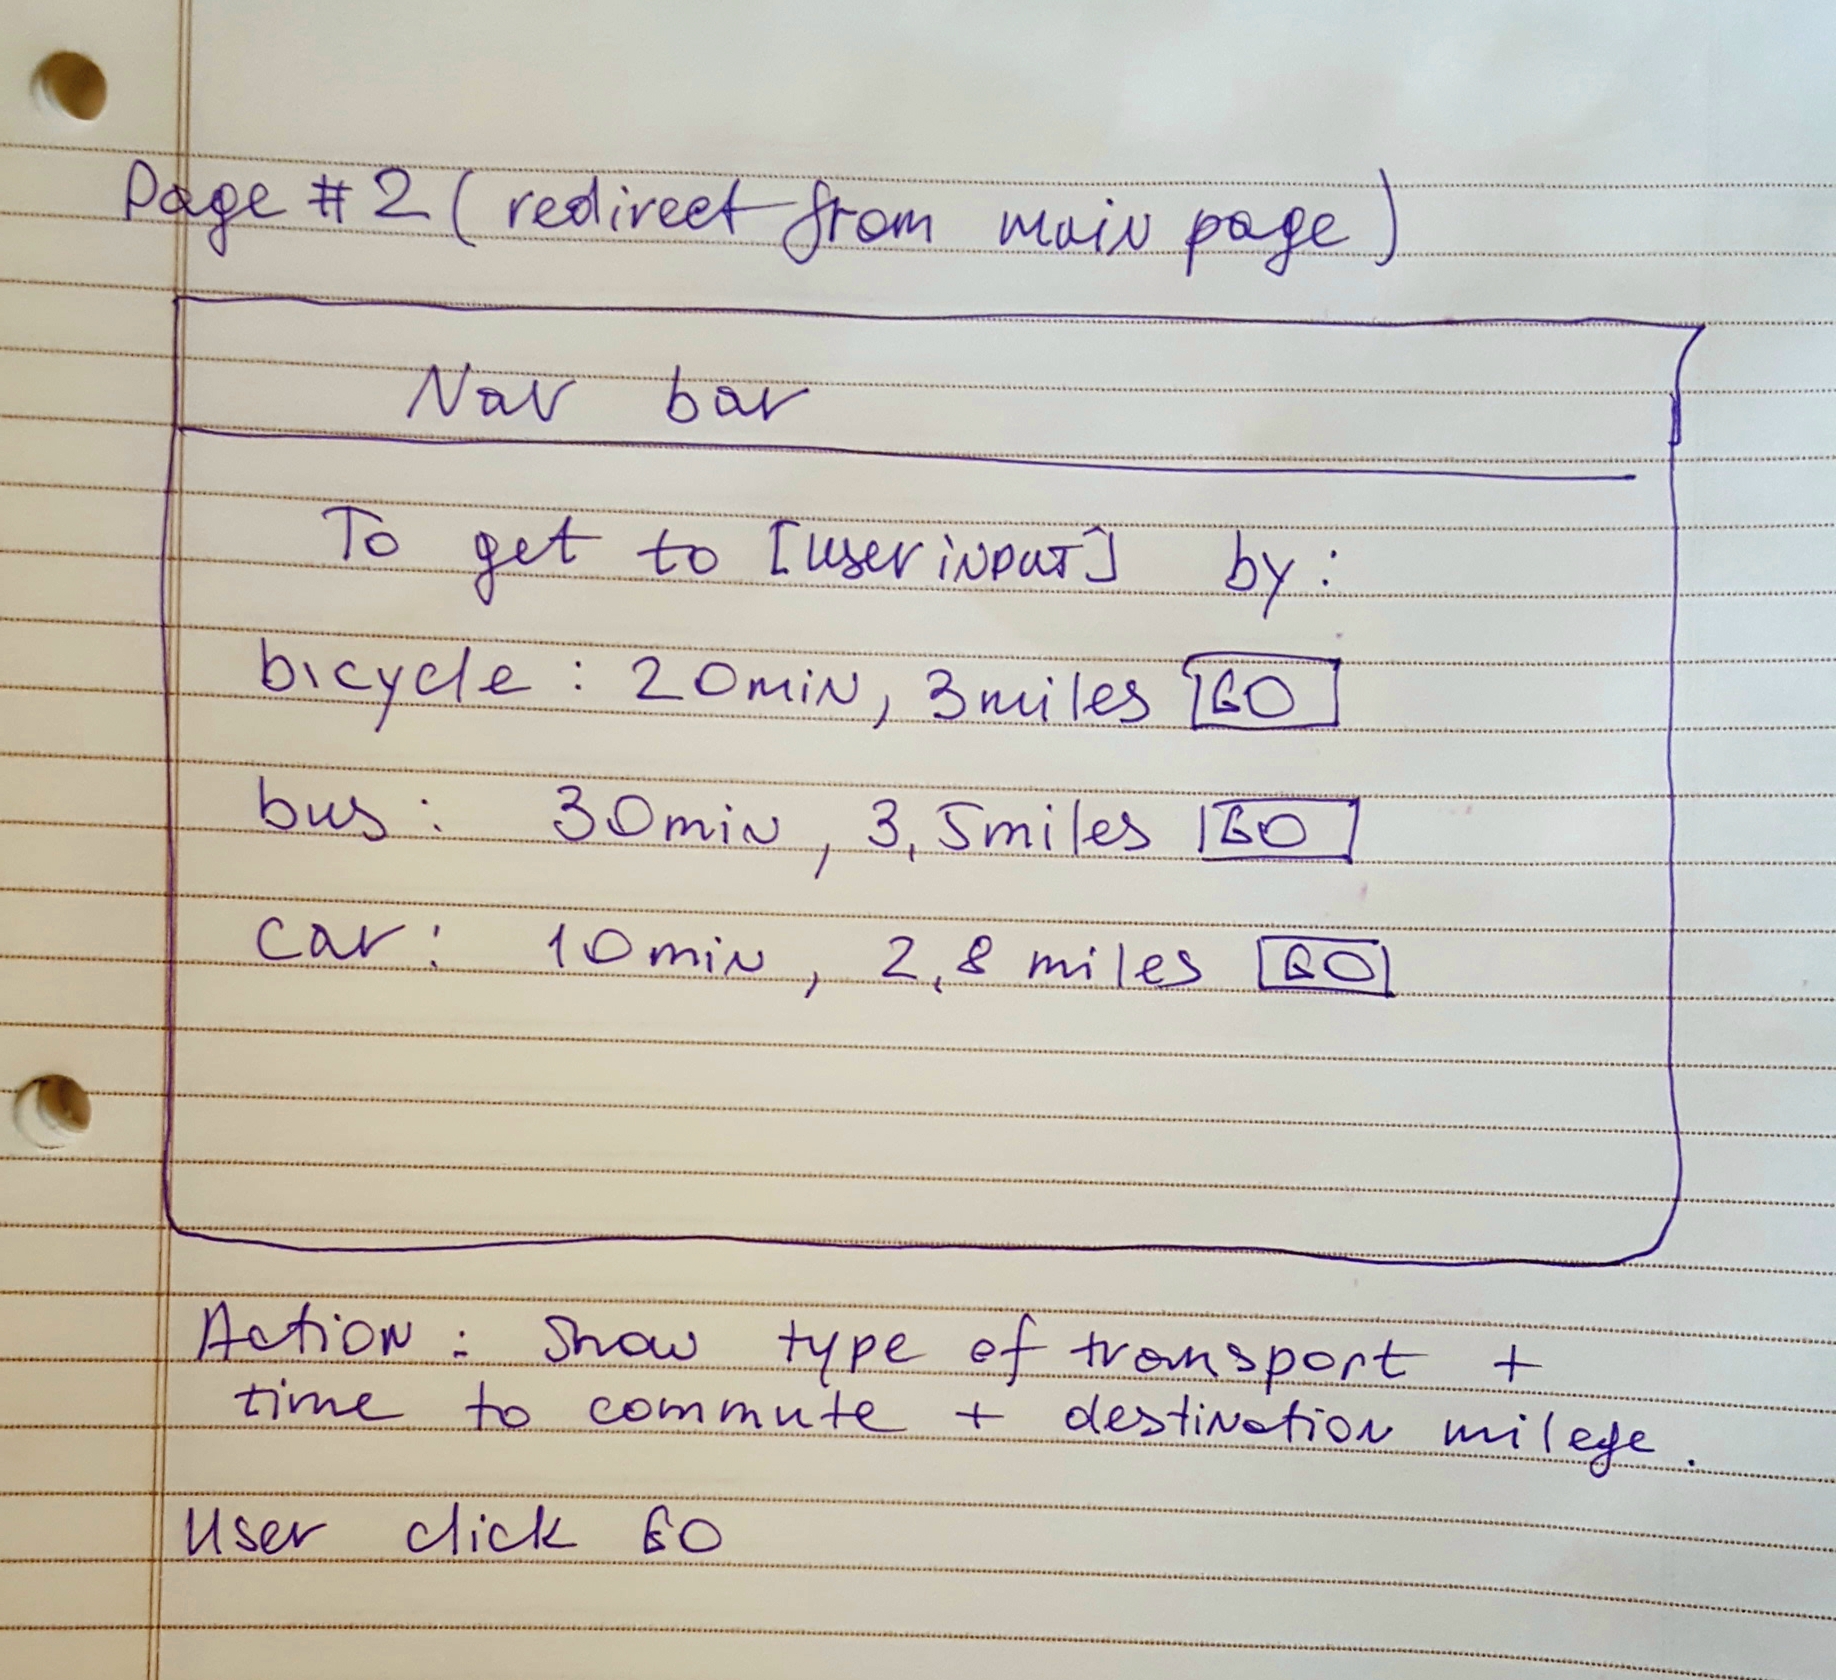 Page #2 (redirect from main page)
Nav bar
To get to [user input] by:
bicycle: 20min, 3miles GO
bus: 30min, 3,5miles GO
car: 10min, 2,8 miles GO
Action: Show type of transport +
time to commute + destination milege.
User click GO